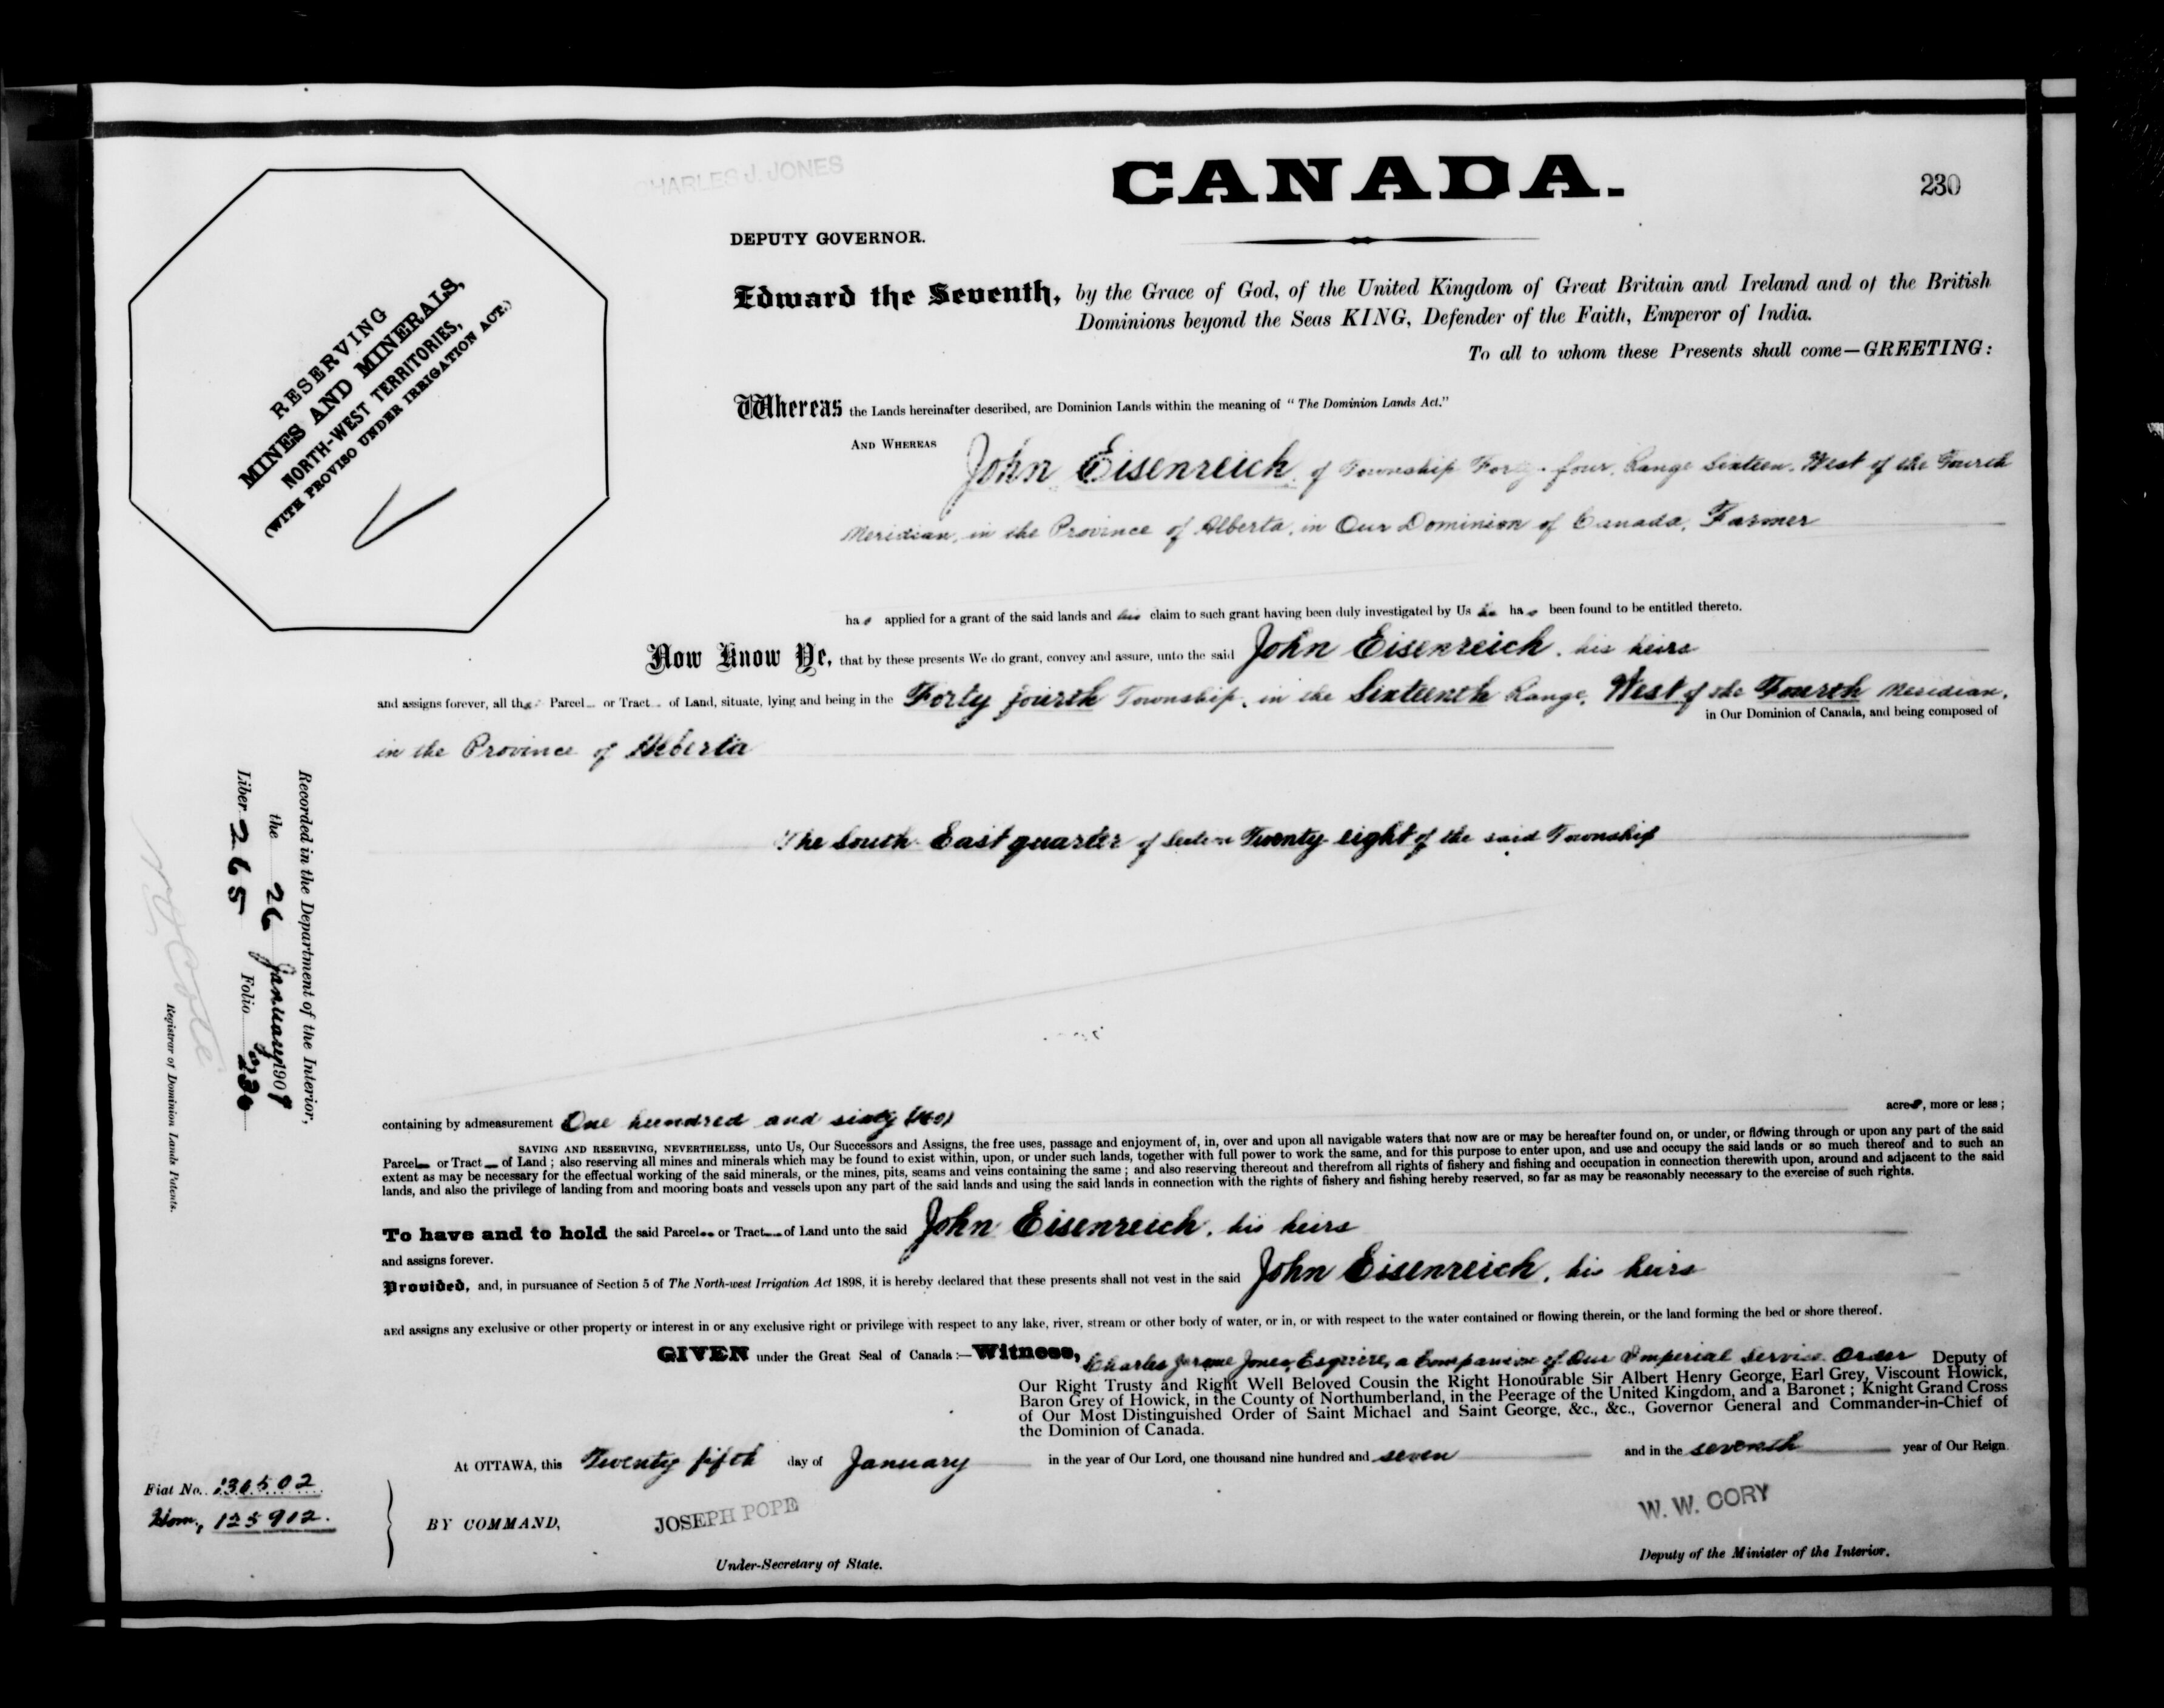 CHARLES J. JONES
CANADA.
230
DEPUTY GOVERNOR.
RESERVING
MINES AND MINERALS,
NORTH-WEST TERRITORIES,
(WITH PROVISO UNDER IRRIGATION ACT.)
Edward the Seventh, by the Grace of God, of the United Kingdom of Great Britain and Ireland and of the British
Dominions beyond the Seas KING, Defender of the Faith, Emperor of India.
To all to whom these Presents shall come—GREETING:
Whereas the Lands hereinafter described, are Dominion Lands within the meaning of "The Dominion Lands Act."
AND WHEREAS John Eisenreich, of Township Forty-four, Range Sixteen, West of the Fourth
Meridian, in the Province of Alberta, in Our Dominion of Canada, Farmer
has applied for a grant of the said lands and his claim to such grant having been duly investigated by Us he has been found to be entitled thereto.
Now Know Ye, that by these presents We do grant, convey and assure, unto the said John Eisenreich, his heirs
and assigns forever, all that Parcel or Tract of Land, situate, lying and being in the Forty fourth Township, in the Sixteenth Range, West of the Fourth Meridian,
in Our Dominion of Canada, and being composed of
in the Province of Alberta
The South East quarter of Section Twenty eight of the said Township
Recorded in the Department of the Interior,
the 26 January 1907
Liber 265 Folio 230
Registrar of Dominion Lands Patents.
containing by admeasurement One hundred and sixty (160) acres, more or less;
SAVING AND RESERVING, NEVERTHELESS, unto Us, Our Successors and Assigns, the free uses, passage and enjoyment of, in, over and upon all navigable waters that now are or may be hereafter found on, or under, or flowing through or upon any part of the said
Parcel or Tract of Land; also reserving all mines and minerals which may be found to exist within, upon, or under such lands, together with full power to work the same, and for this purpose to enter upon, and use and occupy the said lands or so much thereof and to such an
extent as may be necessary for the effectual working of the said minerals, or the mines, pits, seams and veins containing the same; and also reserving thereout and therefrom all rights of fishery and fishing and occupation in connection therewith upon, around and adjacent to the said
lands, and also the privilege of landing from and mooring boats and vessels upon any part of the said lands and using the said lands in connection with the rights of fishery and fishing hereby reserved, so far as may be reasonably necessary to the exercise of such rights.
To have and to hold the said Parcel or Tract of Land unto the said John Eisenreich, his heirs
and assigns forever.
Provided, and, in pursuance of Section 5 of The North-west Irrigation Act 1898, it is hereby declared that these presents shall not vest in the said John Eisenreich, his heirs
and assigns any exclusive or other property or interest in or any exclusive right or privilege with respect to any lake, river, stream or other body of water, or in, or with respect to the water contained or flowing therein, or the land forming the bed or shore thereof.
GIVEN under the Great Seal of Canada:—Witness, Charles Jerome Jones, Esquire, a Companion of Our Imperial Service Order Deputy of
Our Right Trusty and Right Well Beloved Cousin the Right Honourable Sir Albert Henry George, Earl Grey, Viscount Howick,
Baron Grey of Howick, in the County of Northumberland, in the Peerage of the United Kingdom, and a Baronet; Knight Grand Cross
of Our Most Distinguished Order of Saint Michael and Saint George, &c., &c., Governor General and Commander-in-Chief of
the Dominion of Canada.
At OTTAWA, this Twenty fifth day of January in the year of Our Lord, one thousand nine hundred and seven and in the seventh year of Our Reign
Fiat No. 136502
Hom, 125912.
BY COMMAND,
JOSEPH POPE
Under-Secretary of State.
W. W. CORY
Deputy of the Minister of the Interior.